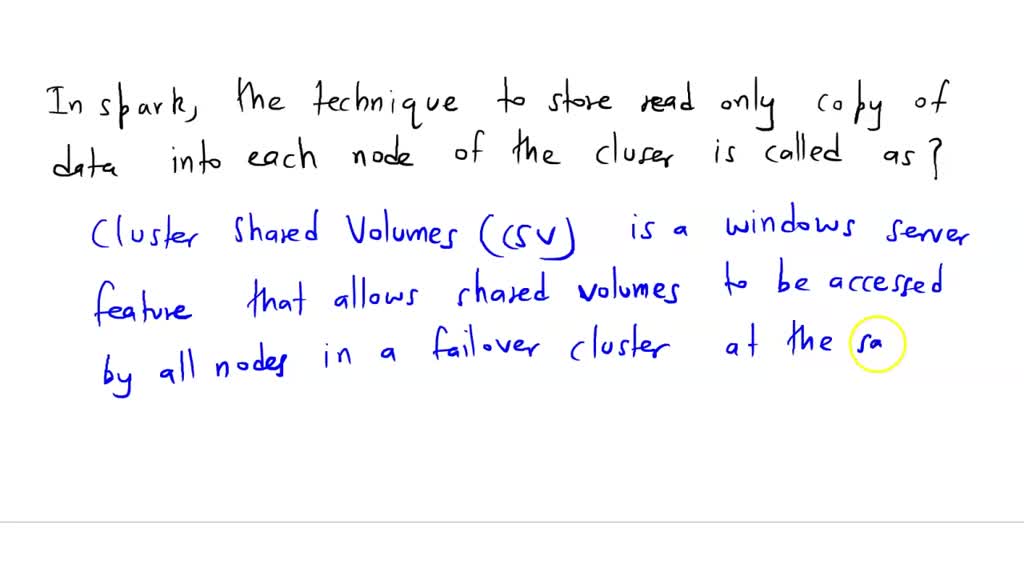 In spark, the technique to store read only copy of
data into each node of the cluser is called as?
Cluster shared Volumes (CSV) is a windows server
feature that allows shared volumes to be accessed
by all nodes in a failover cluster at the sa